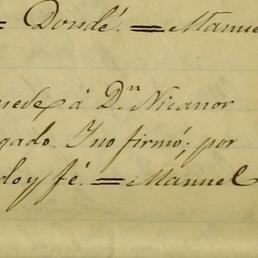 = Dondé. = Manue
uede á Dn Nicanor
gado. I no firmó; por
doy fé. = Manuel